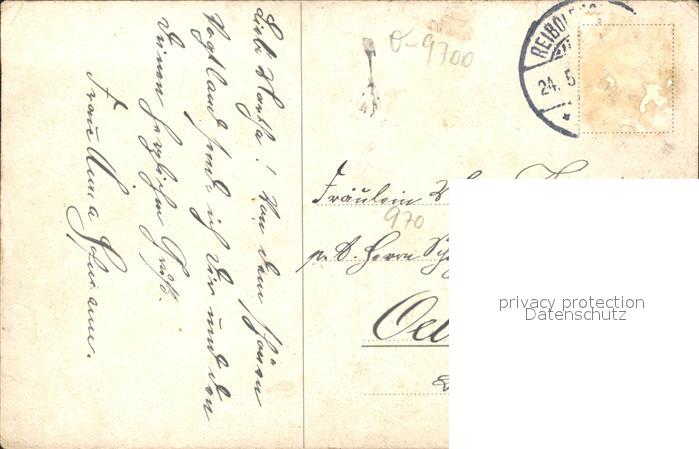 Liebe Martha! Von dem schönen
Vogtland sende ich Dir und den
Deinen herzliche Grüße.
Frau Minna
O-9700
REIBOL
24. 5
Fräulein
970
p. A. Herrn
Oel
privacy protection
Datenschutz